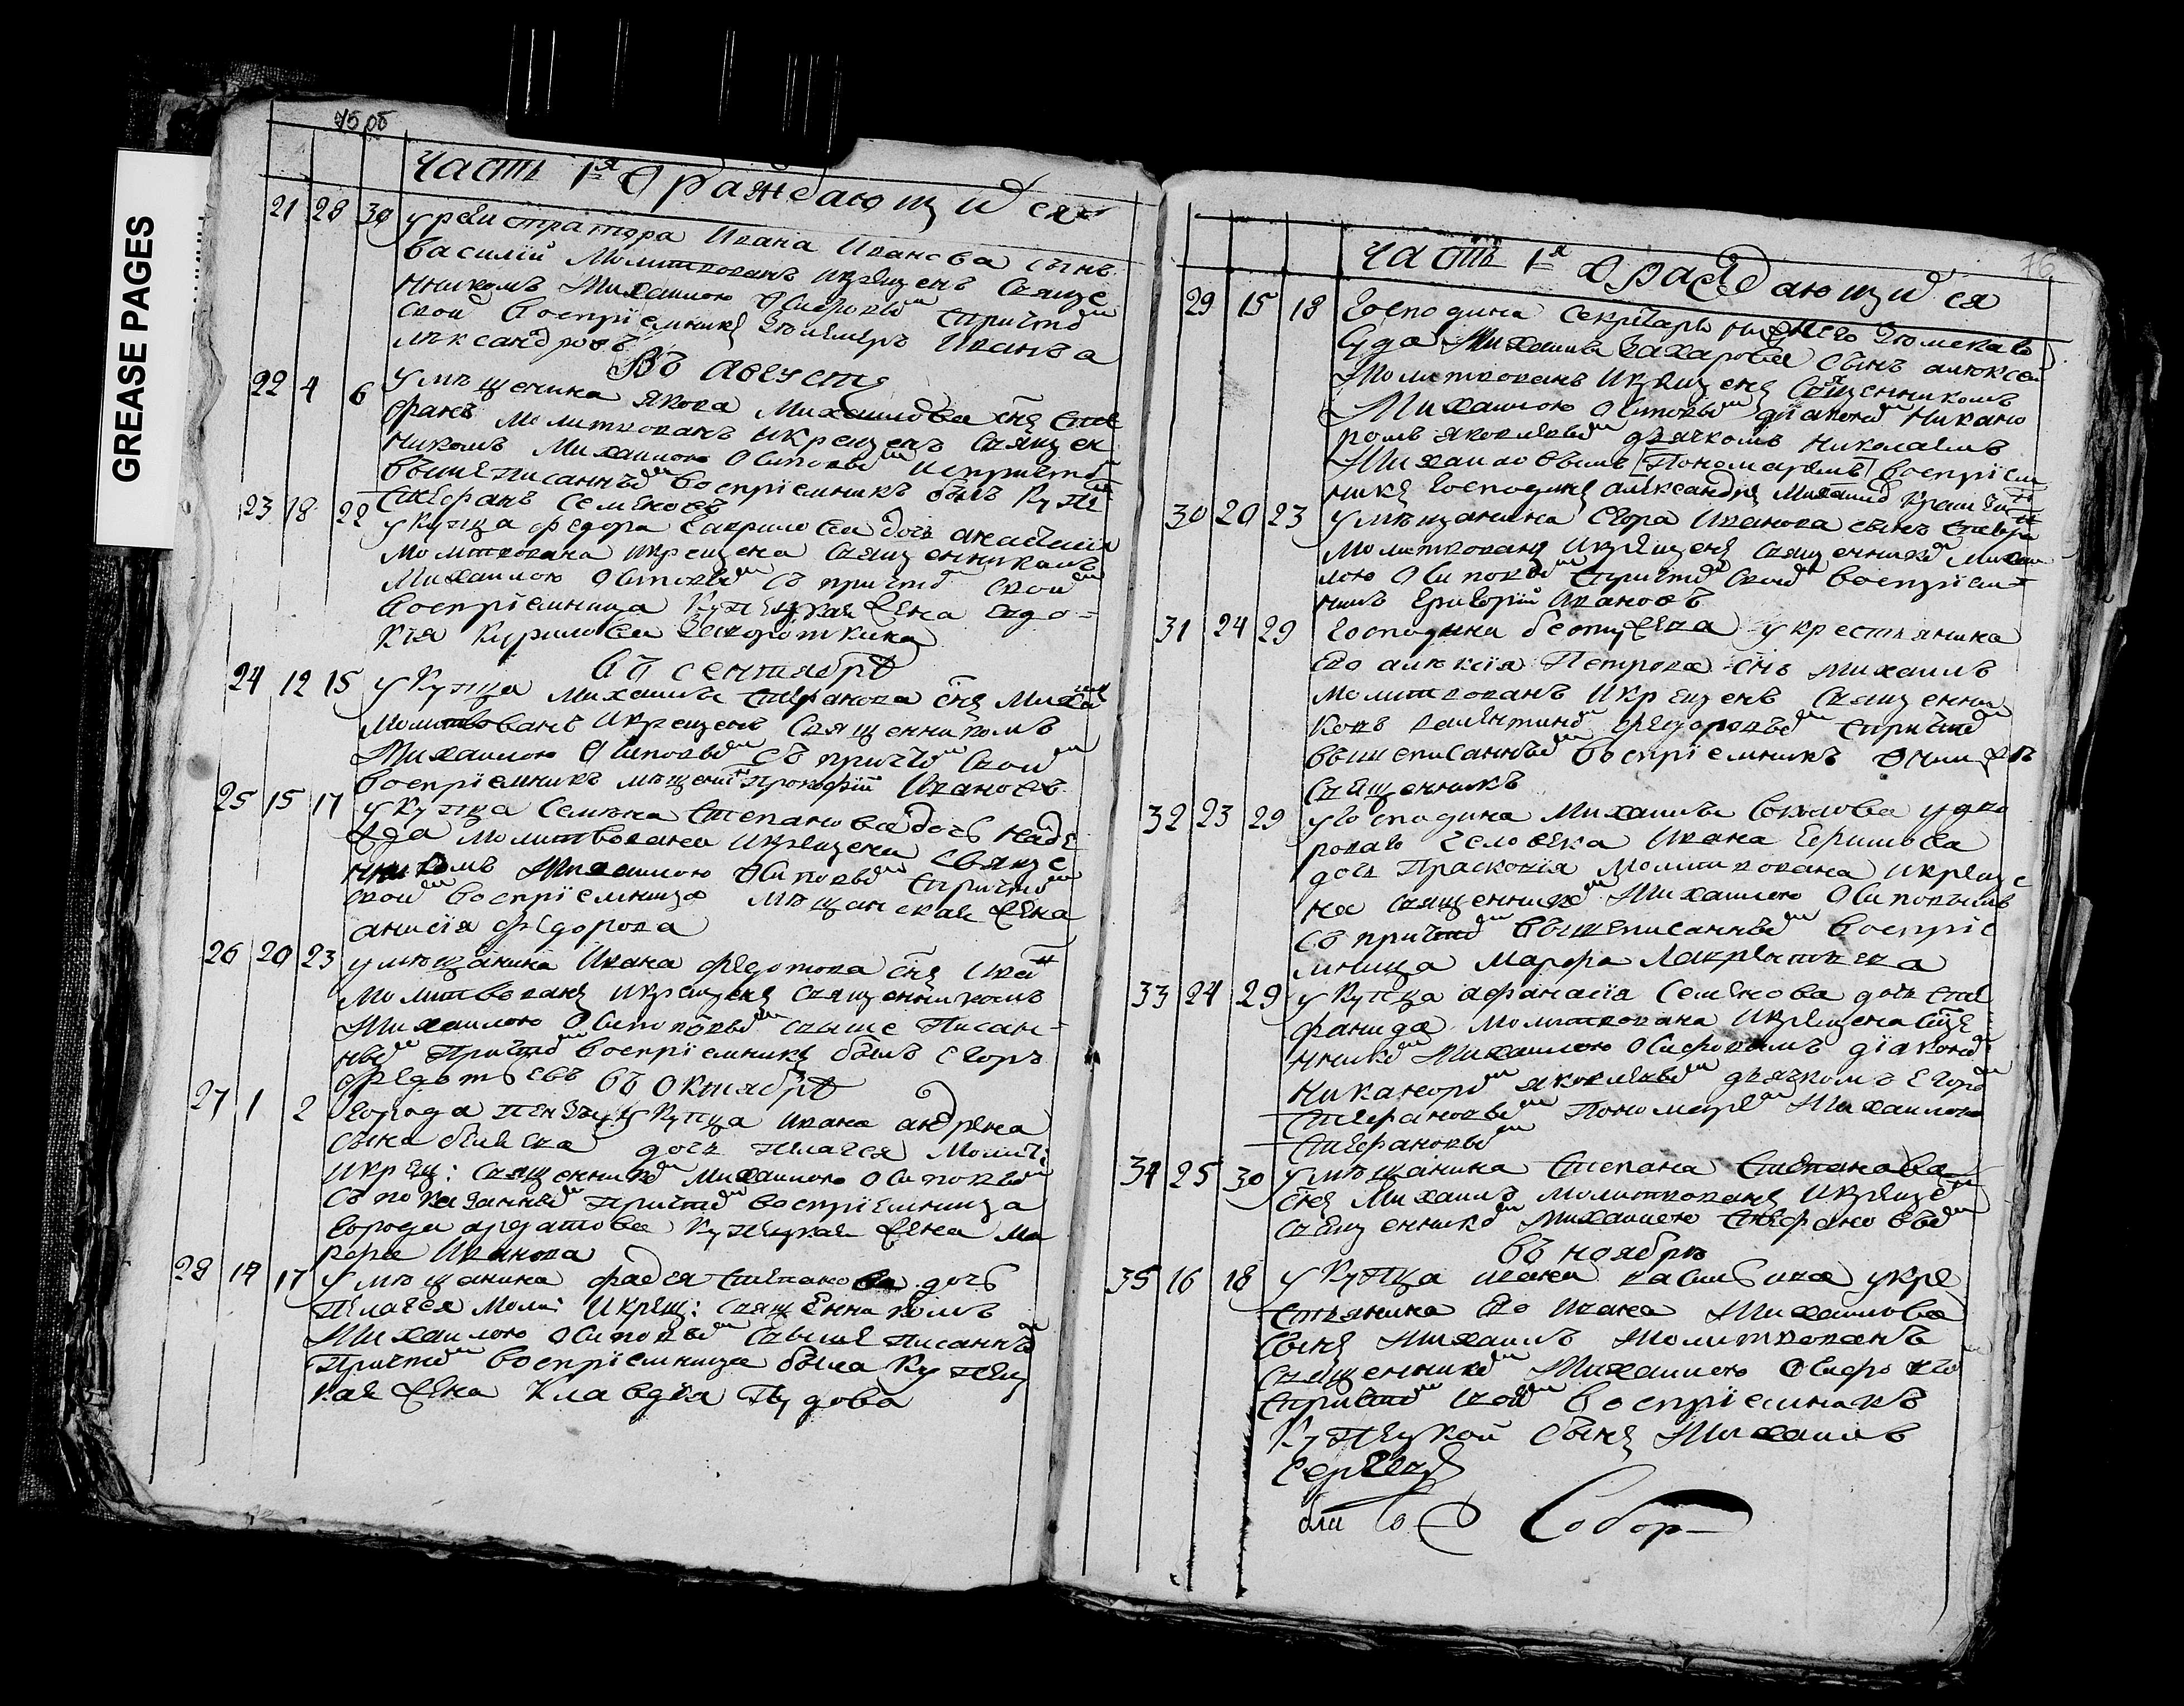 GREASE PAGES
75 об
Часть 1я О раждающихся
21 28 30 у регистратора Ивана Иванова сынъ
василий Молитвованъ икрещенъ Свяще
нникомъ Михаиломъ Осиповым спричтом
свои Восприемникъ Иванъ а
лександровъ
Въ Августе
22 4 6 у мѣщенина якова Михаилова снъ Сте
фанъ Молитвованъ икрещенъ Священ
никомъ Михаиломъ Осиповым испричтом
вышеписаннымъ восприемникъ былъ Купе
Стефанъ Семеновъ
23 18 22 у купца федора Гаврилова дочь анастасия
молитвована икрещена Священникомъ
Михаиломъ Осиповым съ причтом свои
Восприемница Купецкая жена евдо=
кия Курилова
въ сентябрѣ
24 12 15 у Купца Михаила Стефанова снъ Миха
Молитвованъ икрещенъ Священникомъ
Михаиломъ Осиповым съ причто Свои
Восприемникъ мѣщенин Прокофий Ивановъ
25 15 17 у Купца Семена Степанова дочь Наде
жда Молитвована икрещена Свяще
нникомъ Михаиломъ Осиповым спричтом
свои восприемница Мѣщанская жена
анисия федорова
26 20 23 у мѣщанина Ивана федотова снъ Иван
Молитвованъ икрещенъ священникомъ
Михаиломъ Осиповым свыше Писан=
ным Причтом восприемникъ былъ Егоръ
федотьевъ въ Октябрѣ
27 1 2 Города пензы у Купца Ивана андреева
сына дочь пелагея Молит:
икрещ: священником Михаиломъ Осиповым
съ показанным Причтом восприемница
города ардатова Купецкая жена Ма
рфа Иванова
28 14 17 у мѣщанина фадея Степанова дочь
пелагея Моли: икрещ: священникомъ
Михаиломъ Осиповым свышеписанным
Причтом восприемница была Купец
кая жена Клавдия Пудова
76
часть 1я О раждающихся
29 15 18 Господина Секретаря нижнего Земскаго
Суда Михаила Захарова сынъ алексей
Молитвованъ икрещенъ Священникомъ
Михаиломъ Осиповым диаконом Никано
ромъ яковлевым дьячкомъ Николаемъ
Михаиловымъ Пономаремъ восприем
никъ Господинъ александръ Михаило
30 20 23 у мѣщанина Егора Иванова сынъ
Молитвованъ икрещенъ священником Михаи
ломъ Осиповым спричтом свои восприем=
никъ Григорий Ивановъ
31 24 29 Господина у крестьянина
Его алексия Петрова снъ Михаилъ
молитвованъ икрещенъ Священни
комъ валентином федоровым спричтом
вышеписанным восприемникъ Онъ же
священникъ
32 23 29 у Господина Михаила у дво
роваго человека Ивана Ермилова
дочь Прасковия Молитвована икреще
на священником Михаиломъ Осиповымъ
съ причтом вышеписанным восприе
мница Марфа Лаврентьева
33 24 29 у Купца афанасия Семенова дочь Сте
фанида Молитвована икрещена Свще
нником Михаиломъ Осиповымъ диаконом
Никанором яковлевым дьячкомъ Егором
Стефановым Пономарем Михаиломъ
Стефановым
34 25 30 у мѣщанина Степана Степанова
снъ Михаилъ молитвованъ икрещен
священником Михаиломъ Стефановым
въ ноябрѣ
35 16 18 у Купца укре
стьянина Его Ивана Михаилова
сынъ Михаилъ Молитвованъ
священником Михаиломъ Осиповы
спричтом свои восприемникъ
Купецкой сынъ Михаилъ
Сергеевъ
Собор